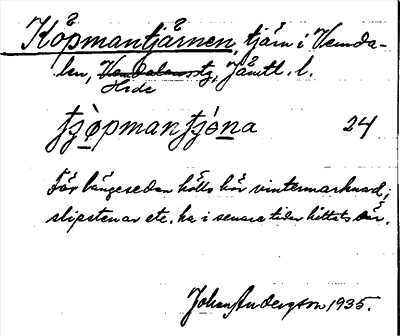 Köpmantjärnen, tjärn i Vemda-
len, Vemdalens tg, Jämtl. l.
Hede
tjö̀pmantjǿna 24
För längesedan hölls här vintermarknad;
slipstenar etc. ha i senare tider hittats där.
Johan Anderzon 1935.